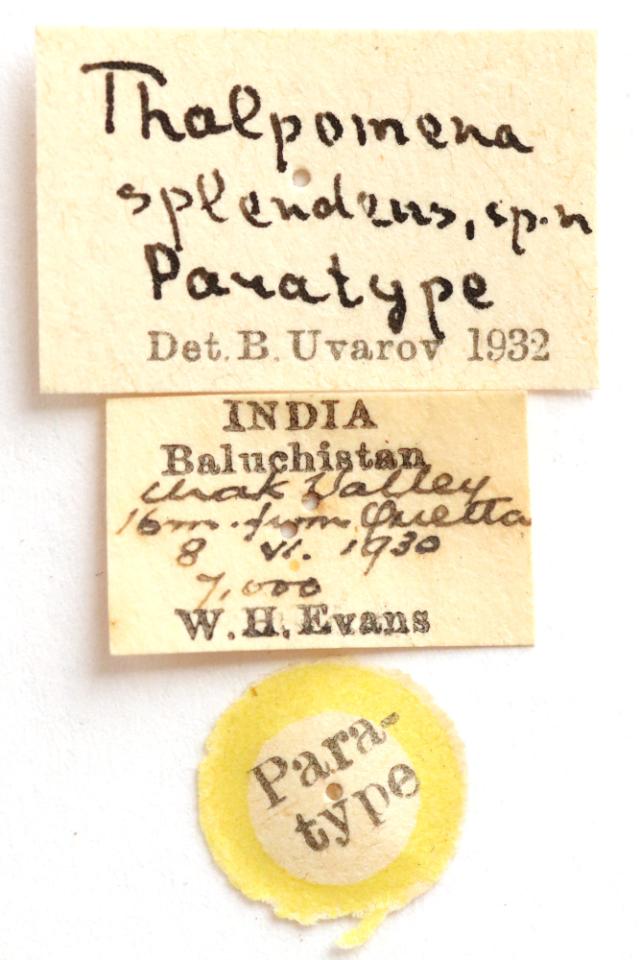 Thalpomena
splendens, sp. n
Paratype
Det. B. Uvarov 1932
INDIA
Baluchistan
Urak Valley
16m. from Quetta
8 VI. 1930
7,000
W. H. Evans
Para-
type